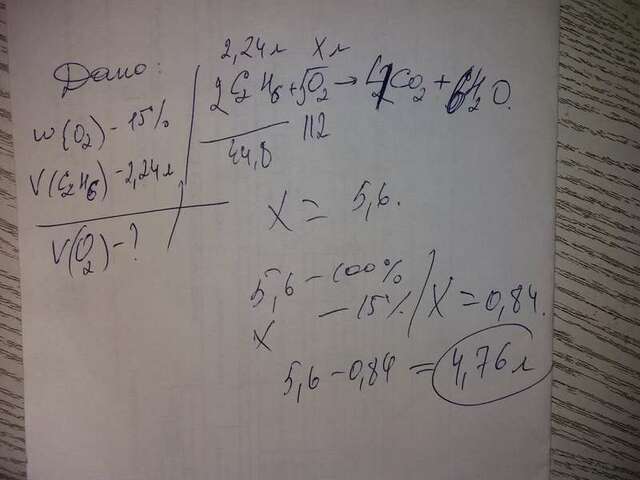 Дано:
w(O2) - 15%
V(C2H6) - 2,24л
V(O2) - ?
2,24л Xл
2C2H6 + 5O2 → 4CO2 + 6H2O.
44,8 112
X = 5,6.
5,6 - 100%
X - 15% / X = 0,84.
5,6 - 0,84 = 4,76л